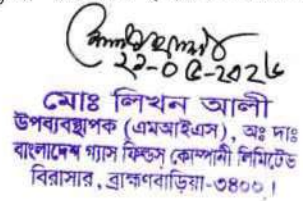 ২২-০৫-২০২৬
মোঃ লিখন আলী
উপব্যবস্থাপক (এমআইএস), অঃ দাঃ
বাংলাদেশ গ্যাস ফিল্ডস্ কোম্পানী লিমিটেড
বিরাসার, ব্রাহ্মণবাড়িয়া-৩৪০০।